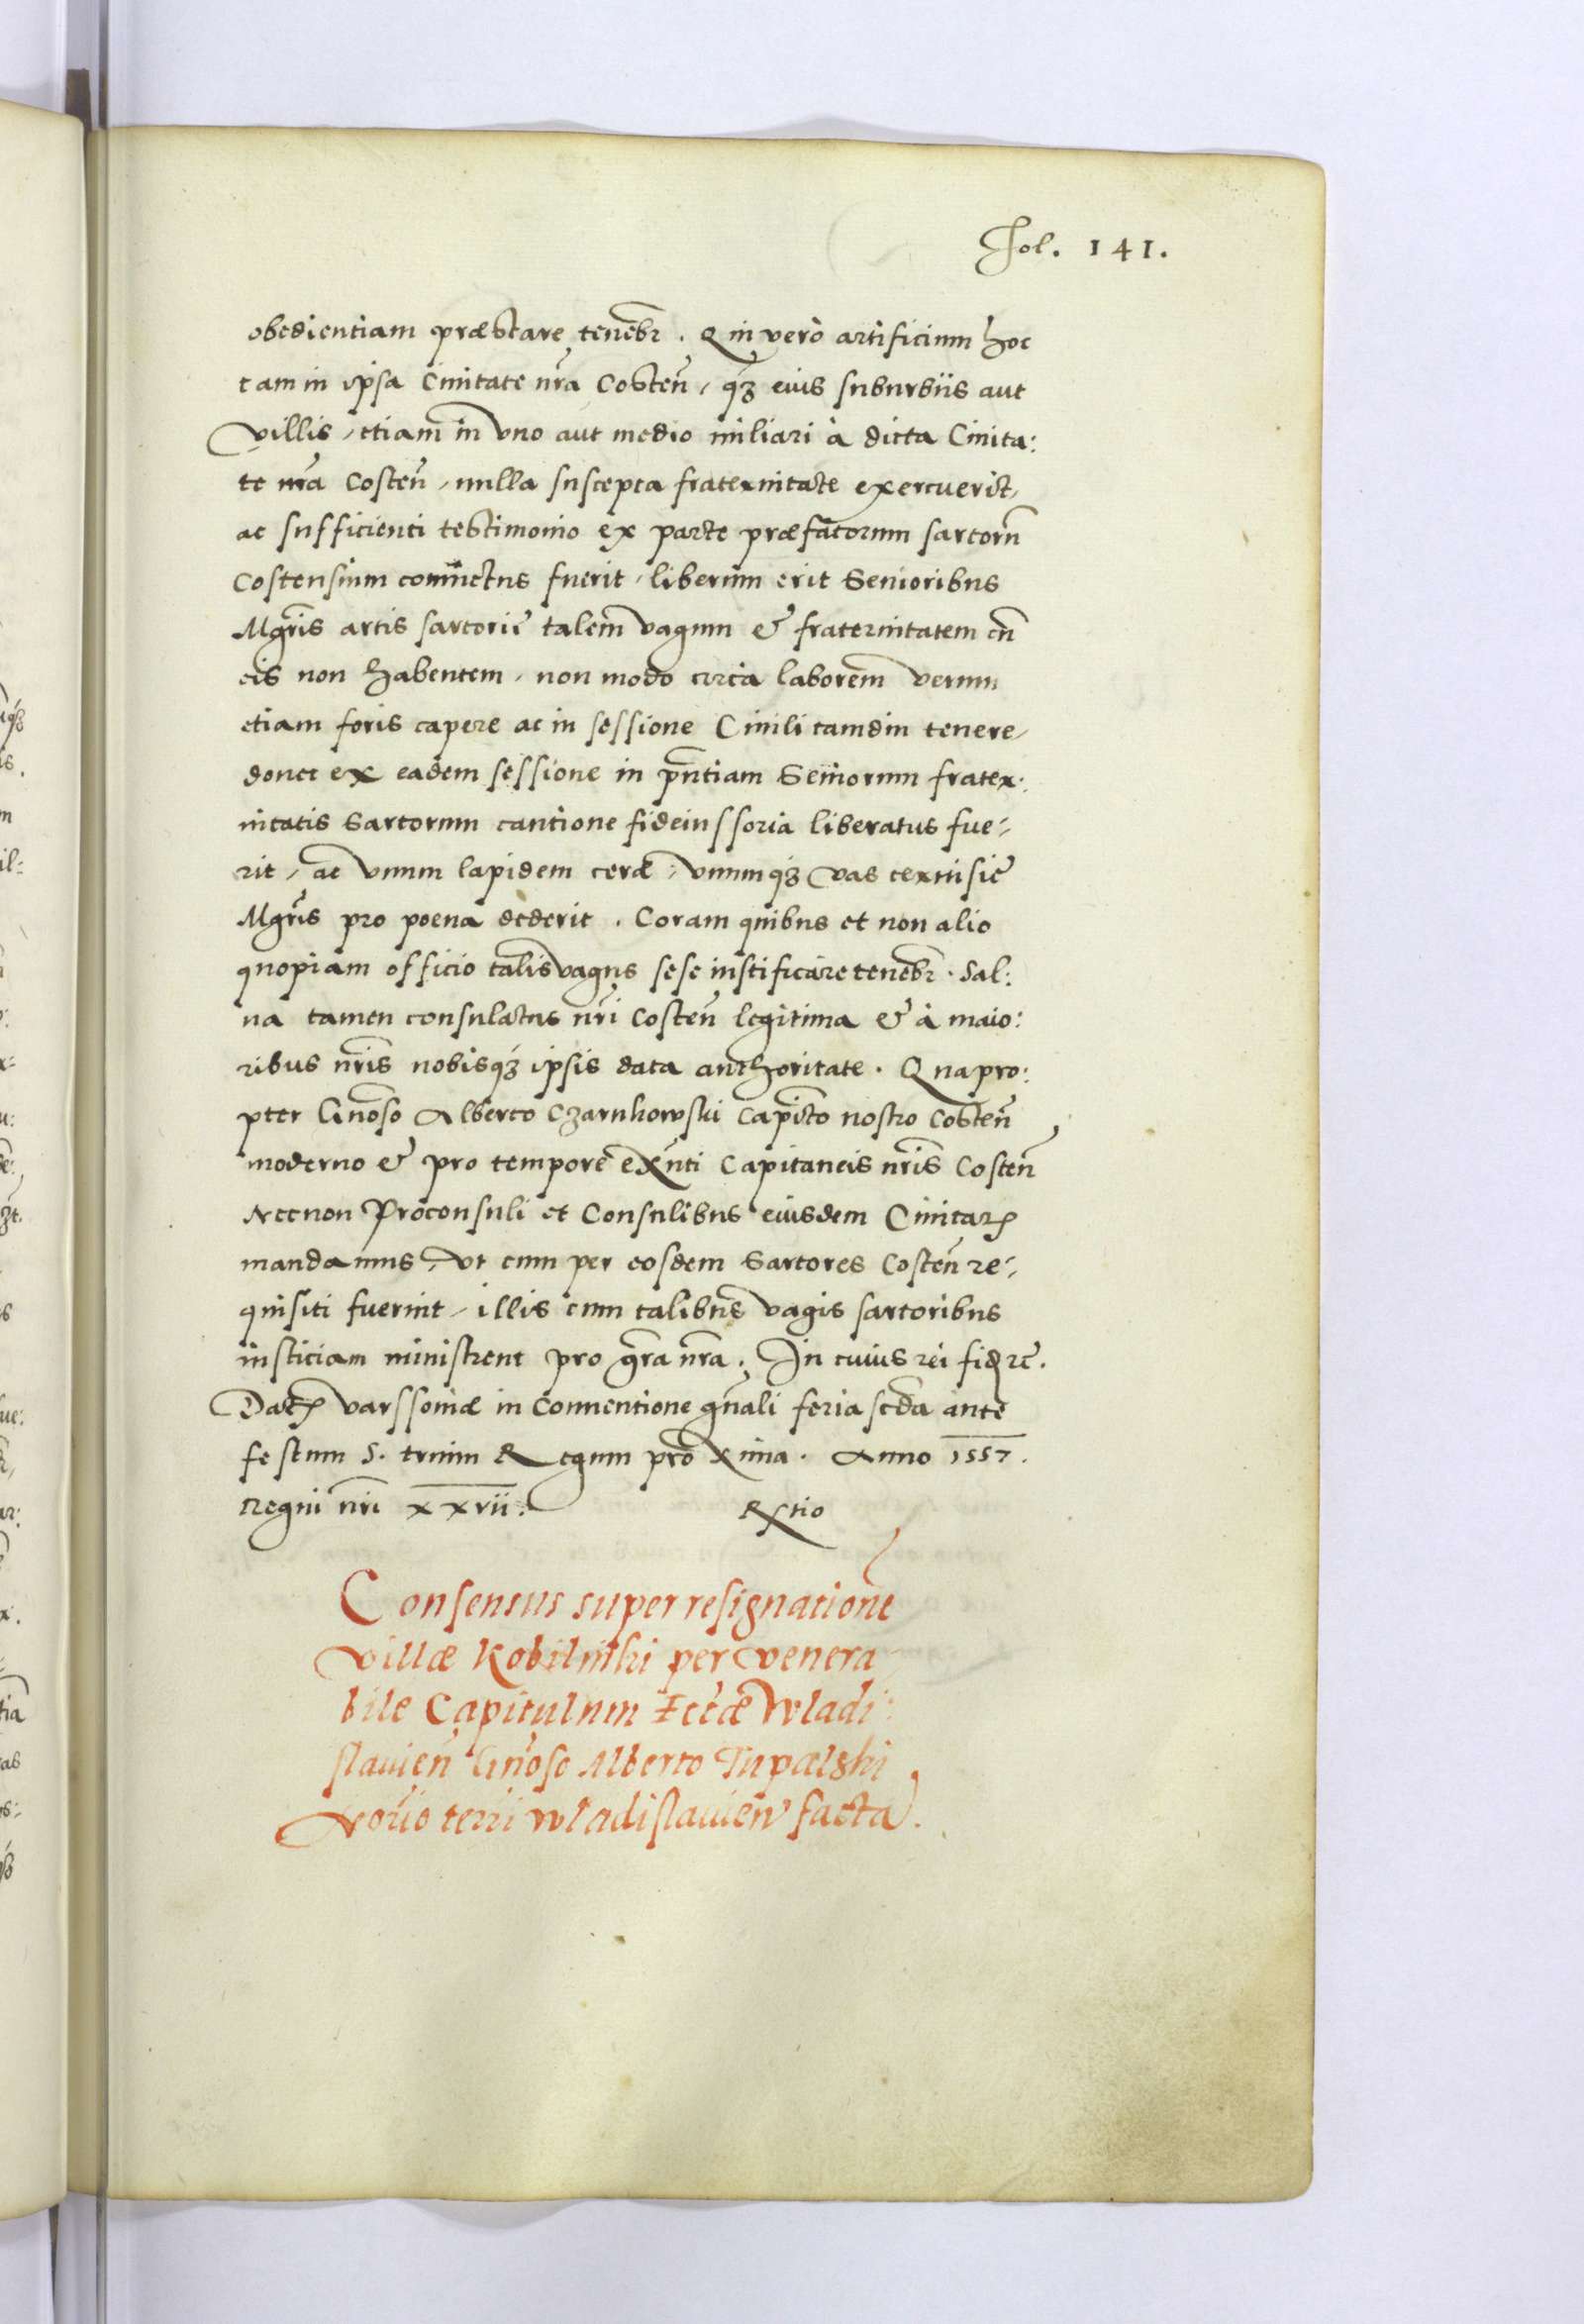 Fol. 141.
obedientiam præstare tenebr̄. Qui verò artificium hoc
tam in ipsa Ciuitate nr̄a Costen̄, qz̄ eius suburbiis aut
villis, etiam in vno aut medio miliari à dicta Ciuita:
te nr̄a Costen̄, nulla suscepta fraternitate exercuerit,
ac sufficienti testimonio ex parte præfatorum sartorū
Costensium conuictus fuerit, liberum erit Senioribus
Mgr̄is artis sartorie talem vagum & fraternitatem cū
eis non habentem, non modo circa laborem verum
etiam foris capere ac in sessione Ciuili tamdiu tenere,
donec ex eadem sessione in pn̄tiam Seniorum frater:
nitatis Sartorum cautione fideiussoria liberatus fue:
rit, ac vnum lapidem ceræ, vnumqz vas ceruisie
Mgr̄is pro poena dederit. Coram quibus et non alio
quopiam officio talis vagus sese iustificare tenebr̄. Sal:
ua tamen consulatus nr̄i Costen̄ legitima & à maio:
ribus nr̄is nobisqz ipsis data authoritate. Quapro:
pter Gn̄oso Alberto Czarnkowski Capit̄o nostro Costen̄
moderno & pro tempore exn̄ti Capitaneis nr̄is Costen̄
Necnon Proconsuli et Consulibus eiusdem Ciuitatꝭ
mandamus, vt cum per eosdem Sartores Costen̄ re:
quisiti fuerint, illis cum talibus vagis sartoribus
iusticiam ministrent pro gr̄a nr̄a. In cuius rei fid. rē.
Datꝭ varssouiæ in Conuentione gn̄ali feria scd̄a ante
festum S. trium Regum proxima. Anno 1557.
Regni nr̄i xxvii.
Rx̄tio
Consensus super resignationē
villæ Kobilniki per venera
bile Capitulum Eccłæ Wladi:
slauien̄ Gn̄oso Alberto Tupalski
Not̄rio terri wladislauien̄ facta.